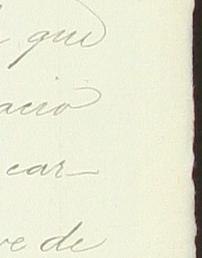 que
acio
car-
ve de